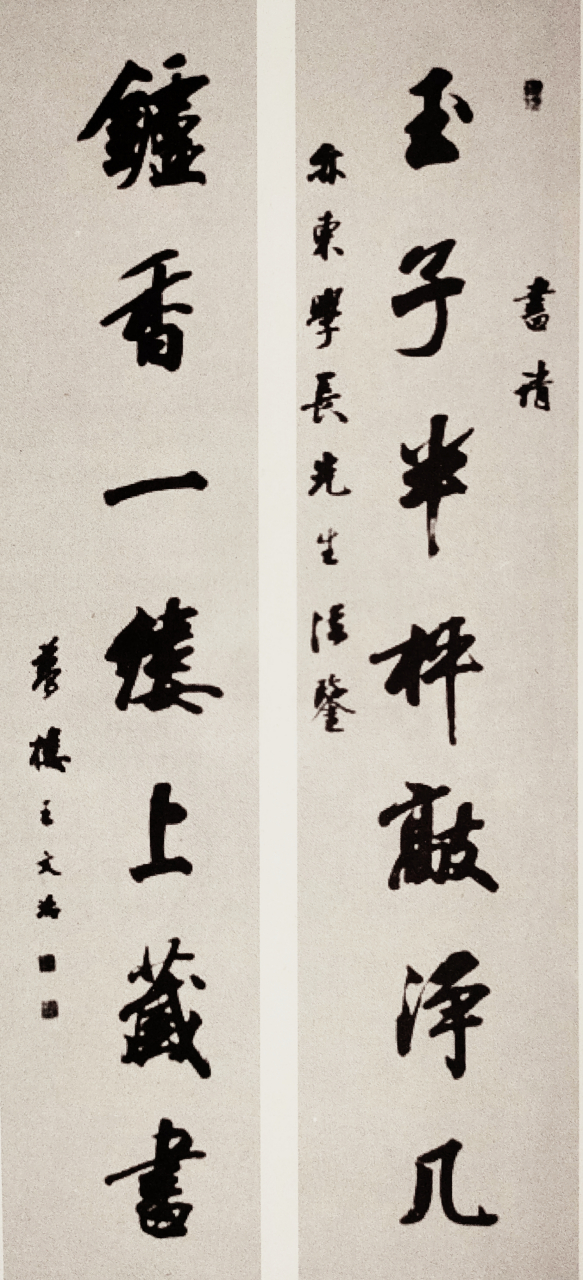 書請
玉子半枰敲淨几
亦東學長先生清鑒
鑪香一縷上藏書
夢樓王文治